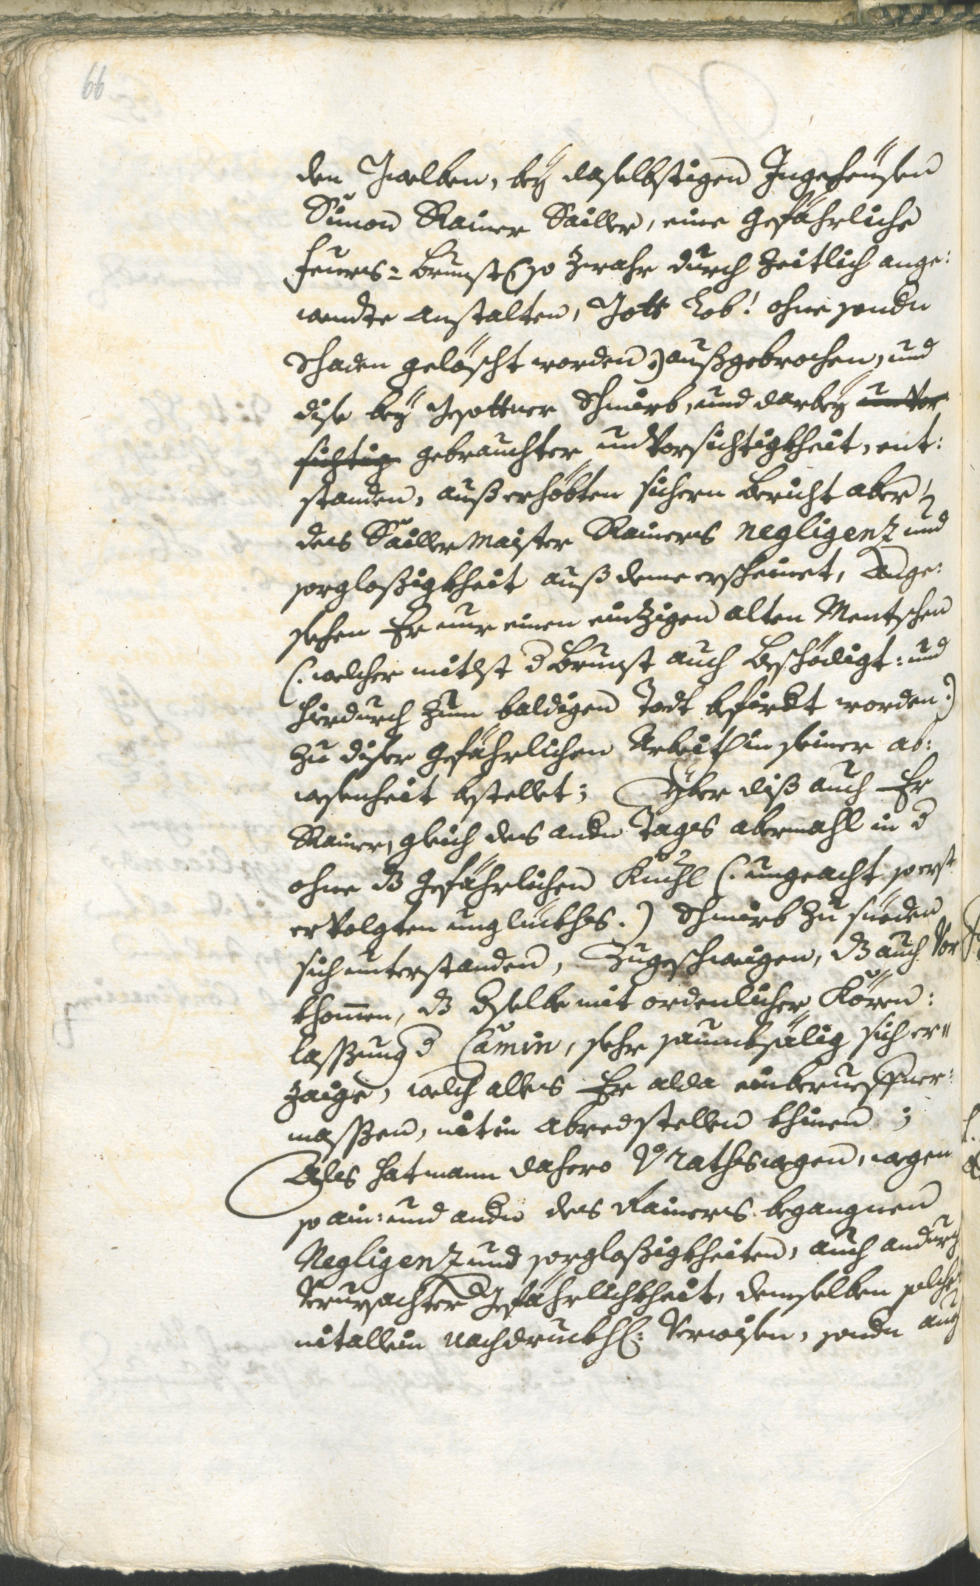 66
den Zwelben, bey daselbstigen Ingeheusen
Simon Rainer Sailler, eine gefährliche
feurs=brunst (:so zwahr durch zeitlich ange:
wendte anstalten, Gott Lob! ohne sondn
schaden gelöscht worden:) außgebrochen, und
dise bey gesottner Schmirb, und darbey unvor
sichtig gebrauchter unvorsichtigkheit, ent:
standen, auß erhöbten sichern bericht aber
des Sailler Maister Rainers negligenz und
sorgloßigkheit auß deme erscheinet, Ange:
sehen Er nur einen eintzigen alten Mentschen
(:welcher mitlst d brunst auch beschödigt: und
hierdurch zum baldigen Todt befirdt worden:)
zu diser gefährlichen Arbeith in seiner ab:
wesenheit bstellet; Über diß auch Er
Rainer, gleich des andn Tages abermahl in d
ohne dz gefährlichen Kuchl (:ungeacht so erst
ervolgten unglückhs:) Schmirb zu sieden
sich unterstanden, Zugeschweigen, dz auch vor
khommen, dz dselbe mit ordenlicher Kören:
lassung d Camin, sehr saumbsälig sich er=
zaige, welch alles Er alda einberueffner:
massen, nit in abred stellen khinen;
Als hat mann dahero V Raths wegen, wegen
so ain: und andn des Rainers begangnen
Negligenz und sorgloßigkheiten, auch andurch
verursachter Gefährlichkheit, demselben solche
nit allein nachdruckhl: verwisen, sondn auch